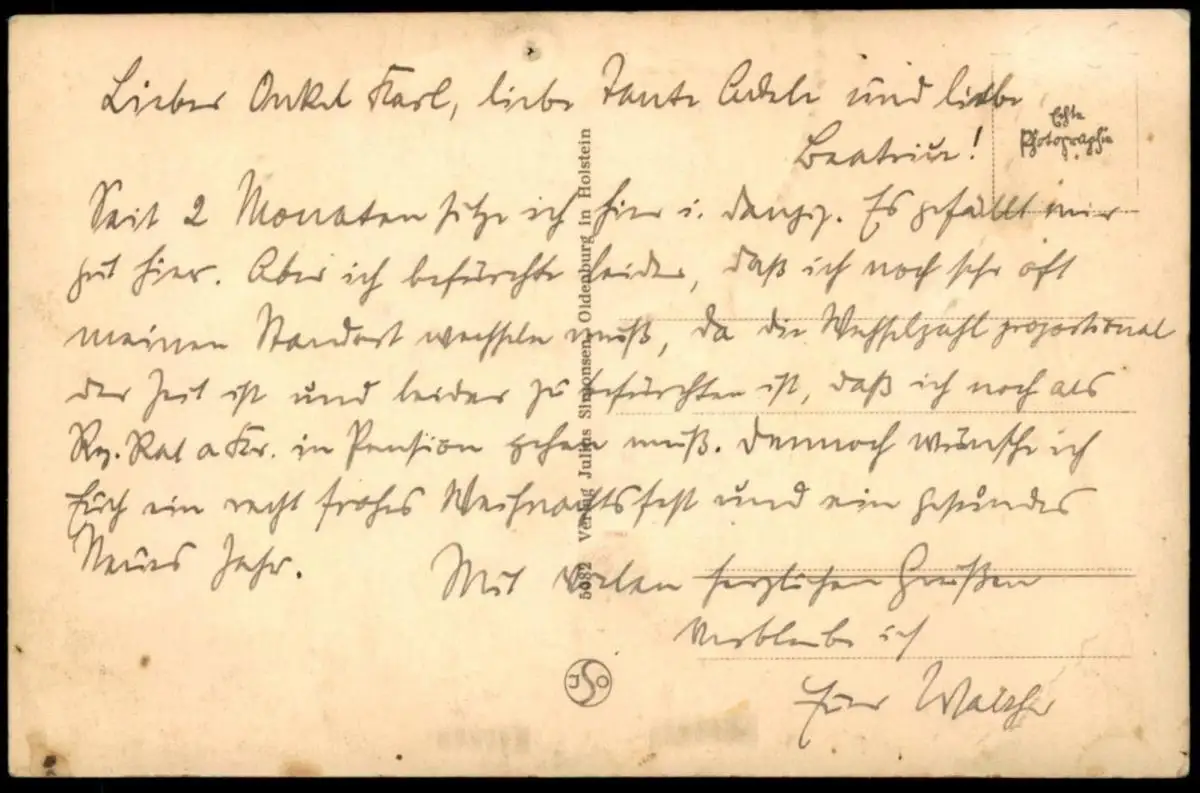 Lieber Onkel Karl, liebe Tante Adele und liebe
Beatrice!
Echte
Photographie
Seit 2 Monaten sitze ich hier i. Danzig. Es gefällt mir
gut hier. Aber ich befürchte leider, daß ich noch sehr oft
meinen Standort wechseln muß, da die Wechselzahl proportional
der Zeit ist und leider zu befürchten ist, daß ich noch als
Rg. Rat a Kr. in Pension gehen muß. Dennoch wünsche ich
Euch ein recht frohes Weihnachtsfest und ein gesundes
Neues Jahr.
Mit vielen herzlichen Grüßen
verbleibe ich
Euer Walther
5082 Verlag Julius Simonsen, Oldenburg in Holstein